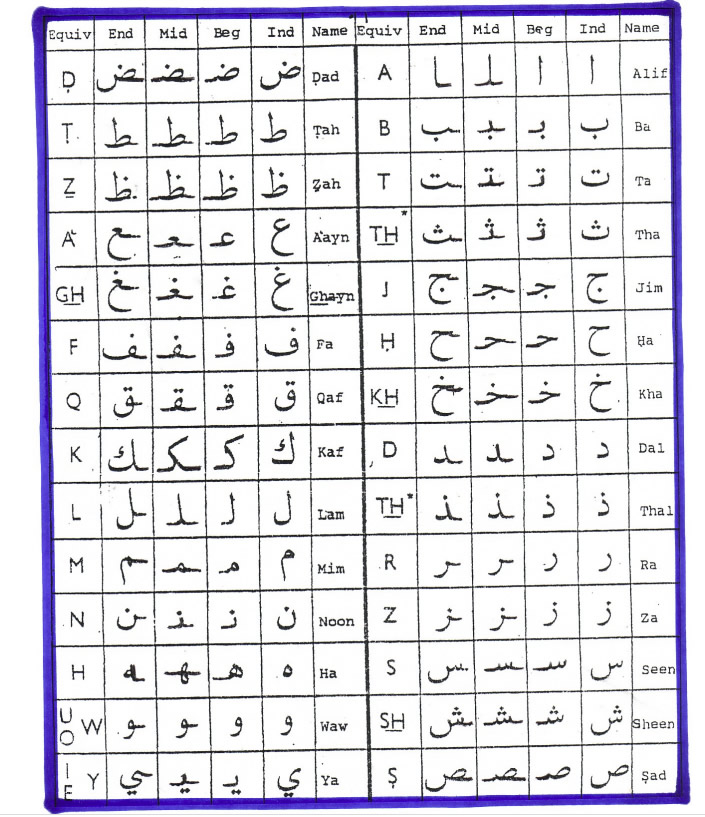 Equiv End Mid Beg Ind Name Equiv End Mid Beg Ind Name
Ḍ ـض ـضـ ضـ ض Ḍad A ـا ـا ا ا Alif
Ṭ ـط ـطـ طـ ط Ṭah B ـب ـبـ بـ ب Ba
Ẓ ـظ ـظـ ظـ ظ Ẓah T ـت ـتـ تـ ت Ta
A' ـع ـعـ عـ ع A'ayn TH* ـث ـثـ ثـ ث Tha
GH ـغ ـغـ غـ غ Ghayn J ـج ـجـ جـ ج Jim
F ـف ـفـ فـ ف Fa Ḥ ـح ـحـ حـ ح Ḥa
Q ـق ـقـ قـ ق Qaf KH ـخ ـخـ خـ خ Kha
K ـك ـكـ كـ ك Kaf D ـد ـد د د Dal
L ـل ـلـ لـ ل Lam TH* ـذ ـذ ذ ذ Thal
M ـم ـمـ مـ م Mim R ـر ـر ر ر Ra
N ـن ـنـ نـ ن Noon Z ـز ـز ز ز Za
H ـه ـهـ هـ ه Ha S ـس ـسـ سـ س Seen
U O W ـو ـو و و Waw SH ـش ـشـ شـ ش Sheen
I E Y ـي ـيـ يـ ي Ya Ṣ ـص ـصـ صـ ص Ṣad